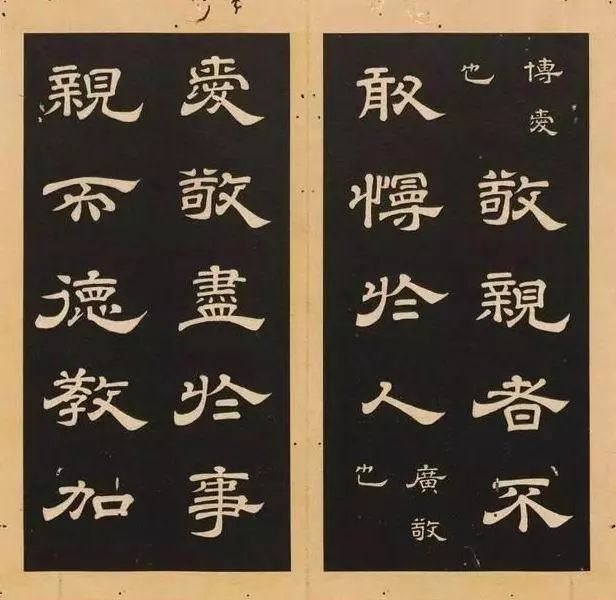 博愛也敬親者不
敢慢於人廣敬也
愛敬盡於事
親而德教加